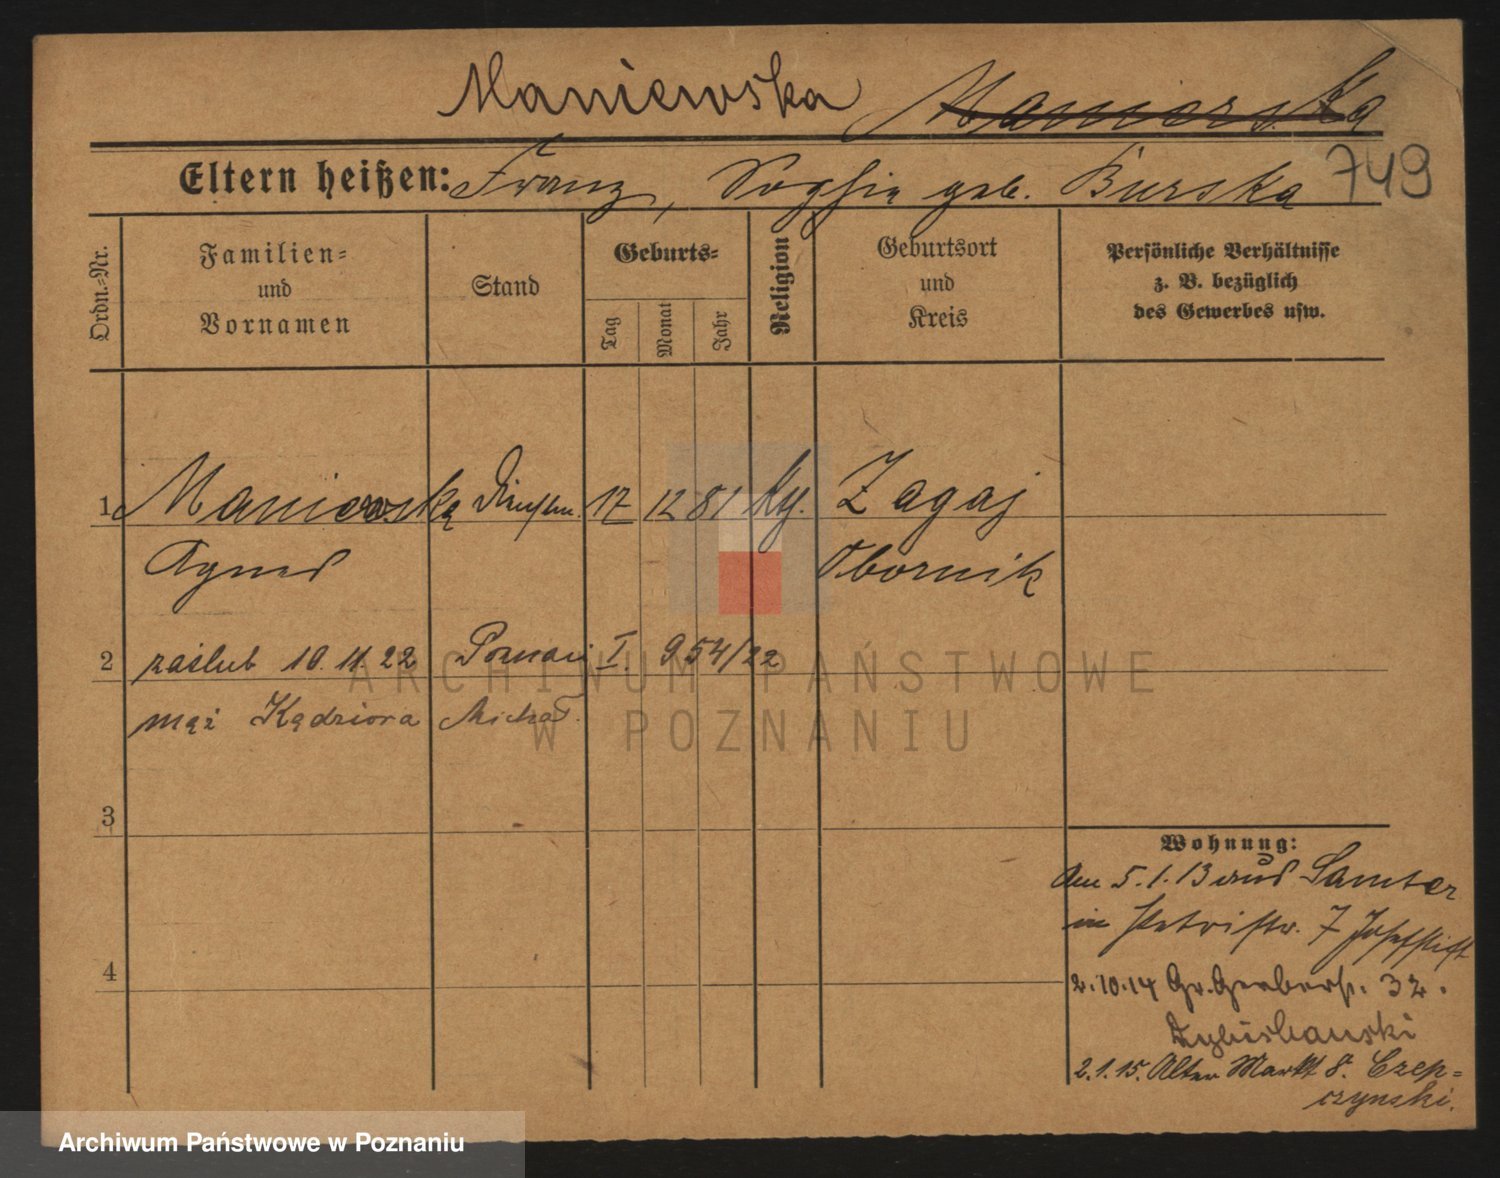 Maniewska Manierska
Eltern heißen: Franz, Sophie geb. Burska 749
Ordn.-Nr.
Familien-
und
Vornamen
Stand
Geburts-
Tag
Monat
Jahr
Religion
Geburtsort
und
Kreis
Persönliche Verhältnisse
z. B. bezüglich
des Gewerbes usw.
1 Maniewska 17 12 81 Zagaj
Agnes Obornik
2 zaślub 10.11.22 Poznań I. 954/22
mąż Kędziora Michał.
3
4
Wohnung:
den 5.1.13 aus Samter
in Petristr. 7 Josefstift
2.10.14 Gr. Gerberstr. 32.
2.1.15. Alter Markt 8. Czep-
czynski.
ARCHIWUM PAŃSTWOWE
W POZNANIU
Archiwum Państwowe w Poznaniu